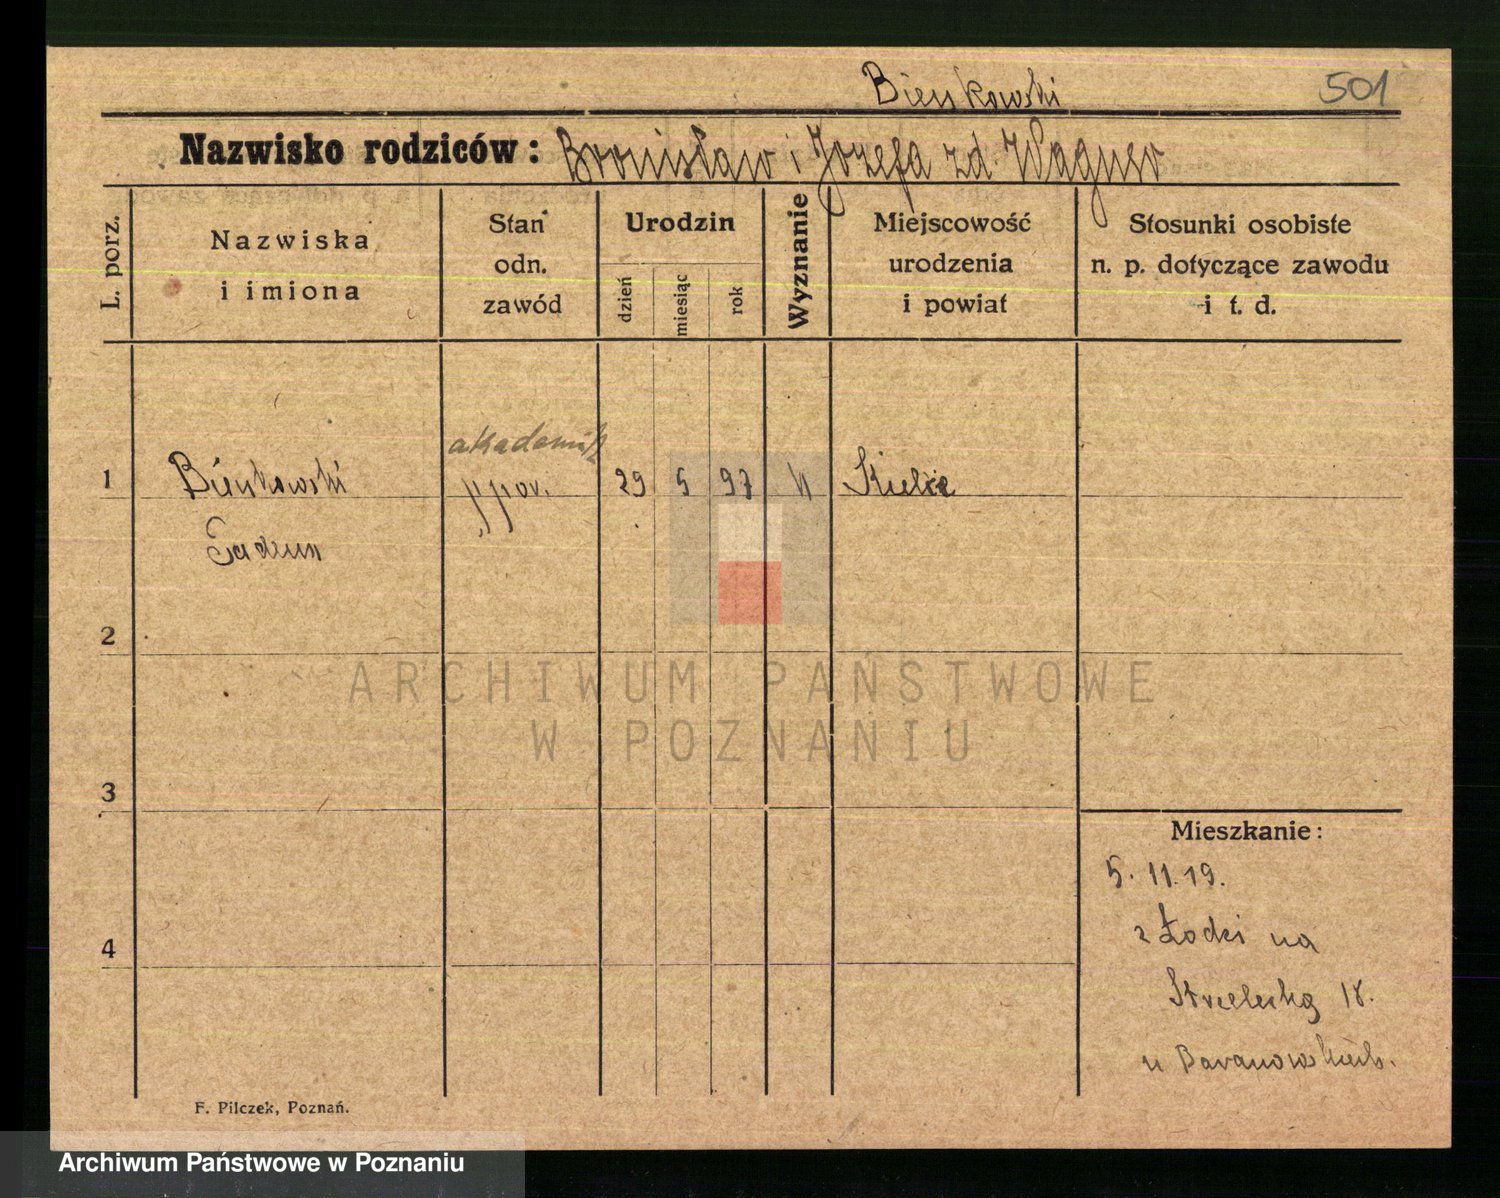 Bieńkowski 501
Nazwisko rodziców: Bronisław i Józefa zd. Wagner
L. porz.
Nazwiska
i imiona
Stan
odn.
zawód
Urodzin
dzień
miesiąc
rok
Wyznanie
Miejscowość
urodzenia
i powiat
Stosunki osobiste
n. p. dotyczące zawodu
i t. d.
akademik
1 Bieńkowski ppor. 29 5 97 Kielce
Tadeusz
2
3
4
Mieszkanie:
5. 11. 19.
z Łodzi na
Strzelecką 18.
u Baranowskich.
F. Pilczek, Poznań.
ARCHIWUM PAŃSTWOWE
W POZNANIU
Archiwum Państwowe w Poznaniu